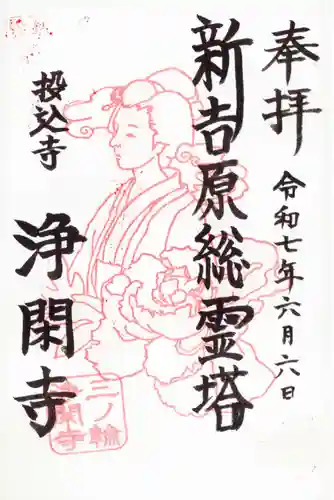 奉拝
令和七年六月六日
新吉原総霊塔
投込寺
浄閑寺
三ノ輪
浄閑寺